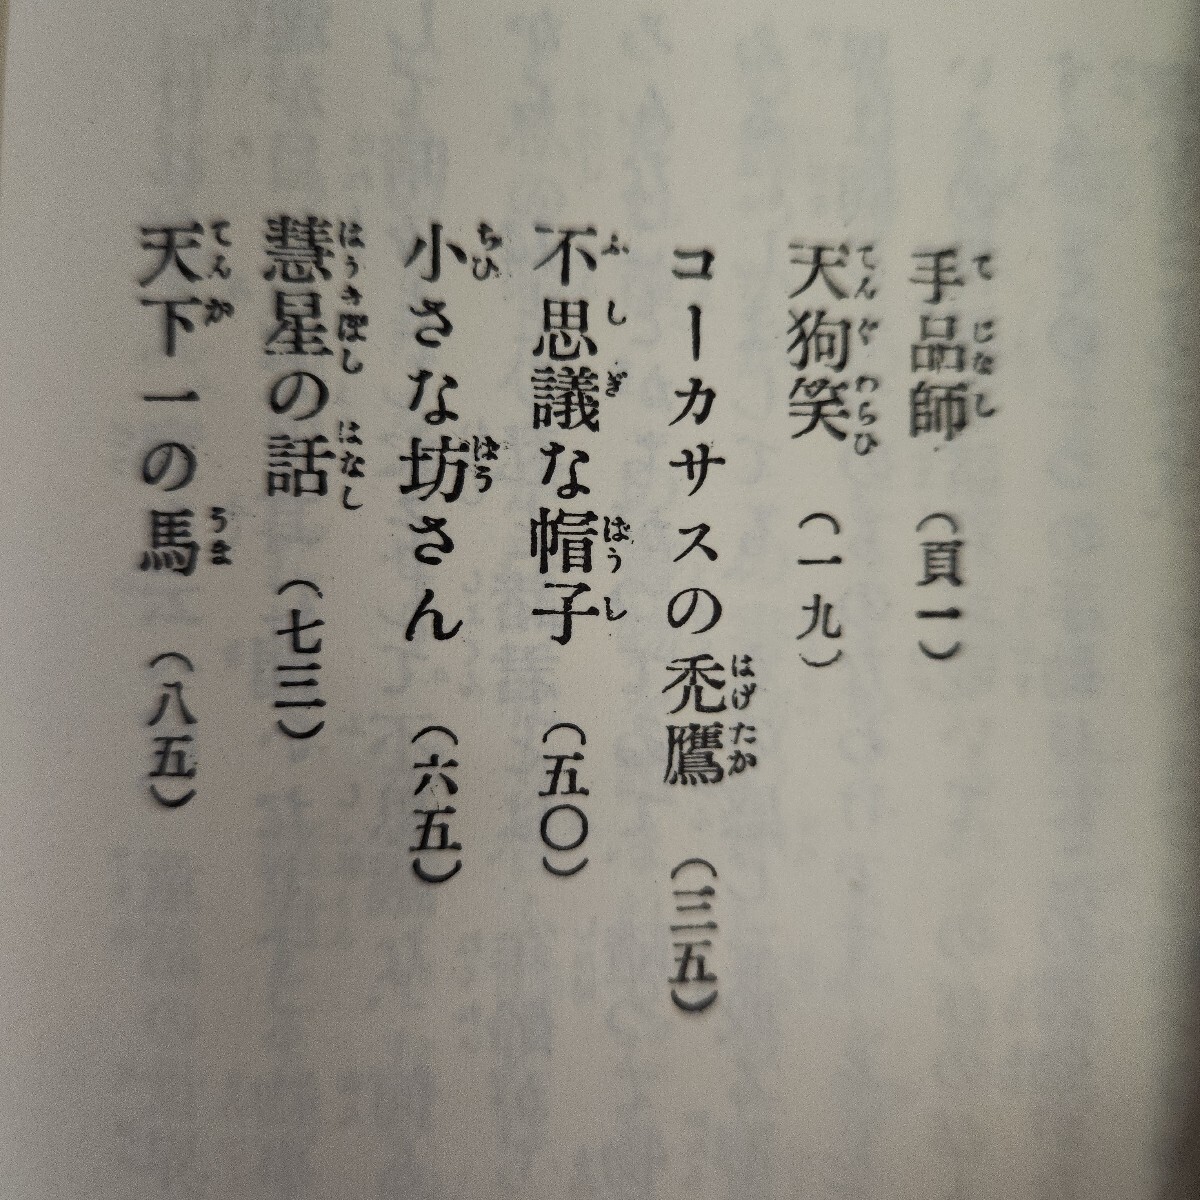 手品師 (頁一)
天狗笑 (一九)
コーカサスの禿鷹 (三五)
不思議な帽子 (五〇)
小さな坊さん (六五)
彗星の話 (七三)
天下一の馬 (八五)